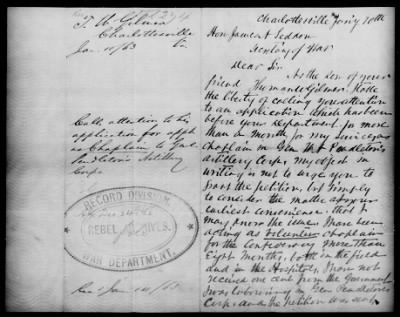 T. W. Gilmer
Charlottesville
Va
Jan 10/63
Calls attention to his
application for appt
as Chaplain to Genl
Pendleton's Artillery
Corps
RECORD DIVISION
REBEL ARCHIVES,
WAR DEPARTMENT.
Recd Jan 14/63
Charlottesville Jan'y 10th
Hon James A Seddon
Secretary of War
Dear Sir
As the son of your
friend Thomas W Gilmer I take
the liberty of calling your attention
to an application which has been
before your Department for more
than a month for my services as
chaplain in Gen Pendleton's
artillery Corps. my object in
writing is not to urge you to
grant the petition, but simply
to consider the matter at your
earliest convenience, that I
may know the issue. I have been
acting as volunteer chaplain
for the Confederacy more than
Eight Months, both in the field
and in the Hospitals, I have not
received one cent from the Government
I was laboring in Gen Pendleton's
Corps and the petition was sent